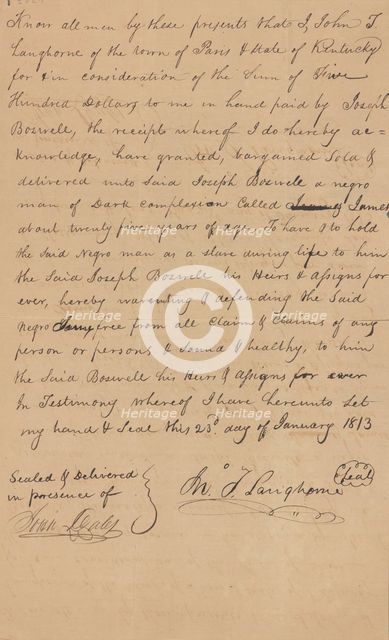 Know all men by these presents that I, John T.
Langhorne of the town of Paris & State of Kentucky
for & in consideration of the Sum of Five
Hundred Dollars to me in hand paid by Joseph
Boswell, the receipts whereof I do hereby ac=
knowledge, have granted, bargained Sold &
delivered unto Said Joseph Boswell a negro
man of Dark complexion Called James
about twenty five years of age. To have & to hold
the Said Negro man as a slave during life to him
the Said Joseph Boswell his Heirs & assigns for
ever, hereby warenting & defending the Said
Negro free from all Claim & Claims of any
person or persons & Sound & healthy, to him
the Said Boswell his Heirs & assigns for ever
In Testimony whereof I have hereunto Set
my hand & Seal this 23d. day of January 1813
Sealed & Delivered
in presence of
Jno. T. Langhorne
Seal
Heritage
Heritage
Heritage
Heritage
Heritage
Heritage
©